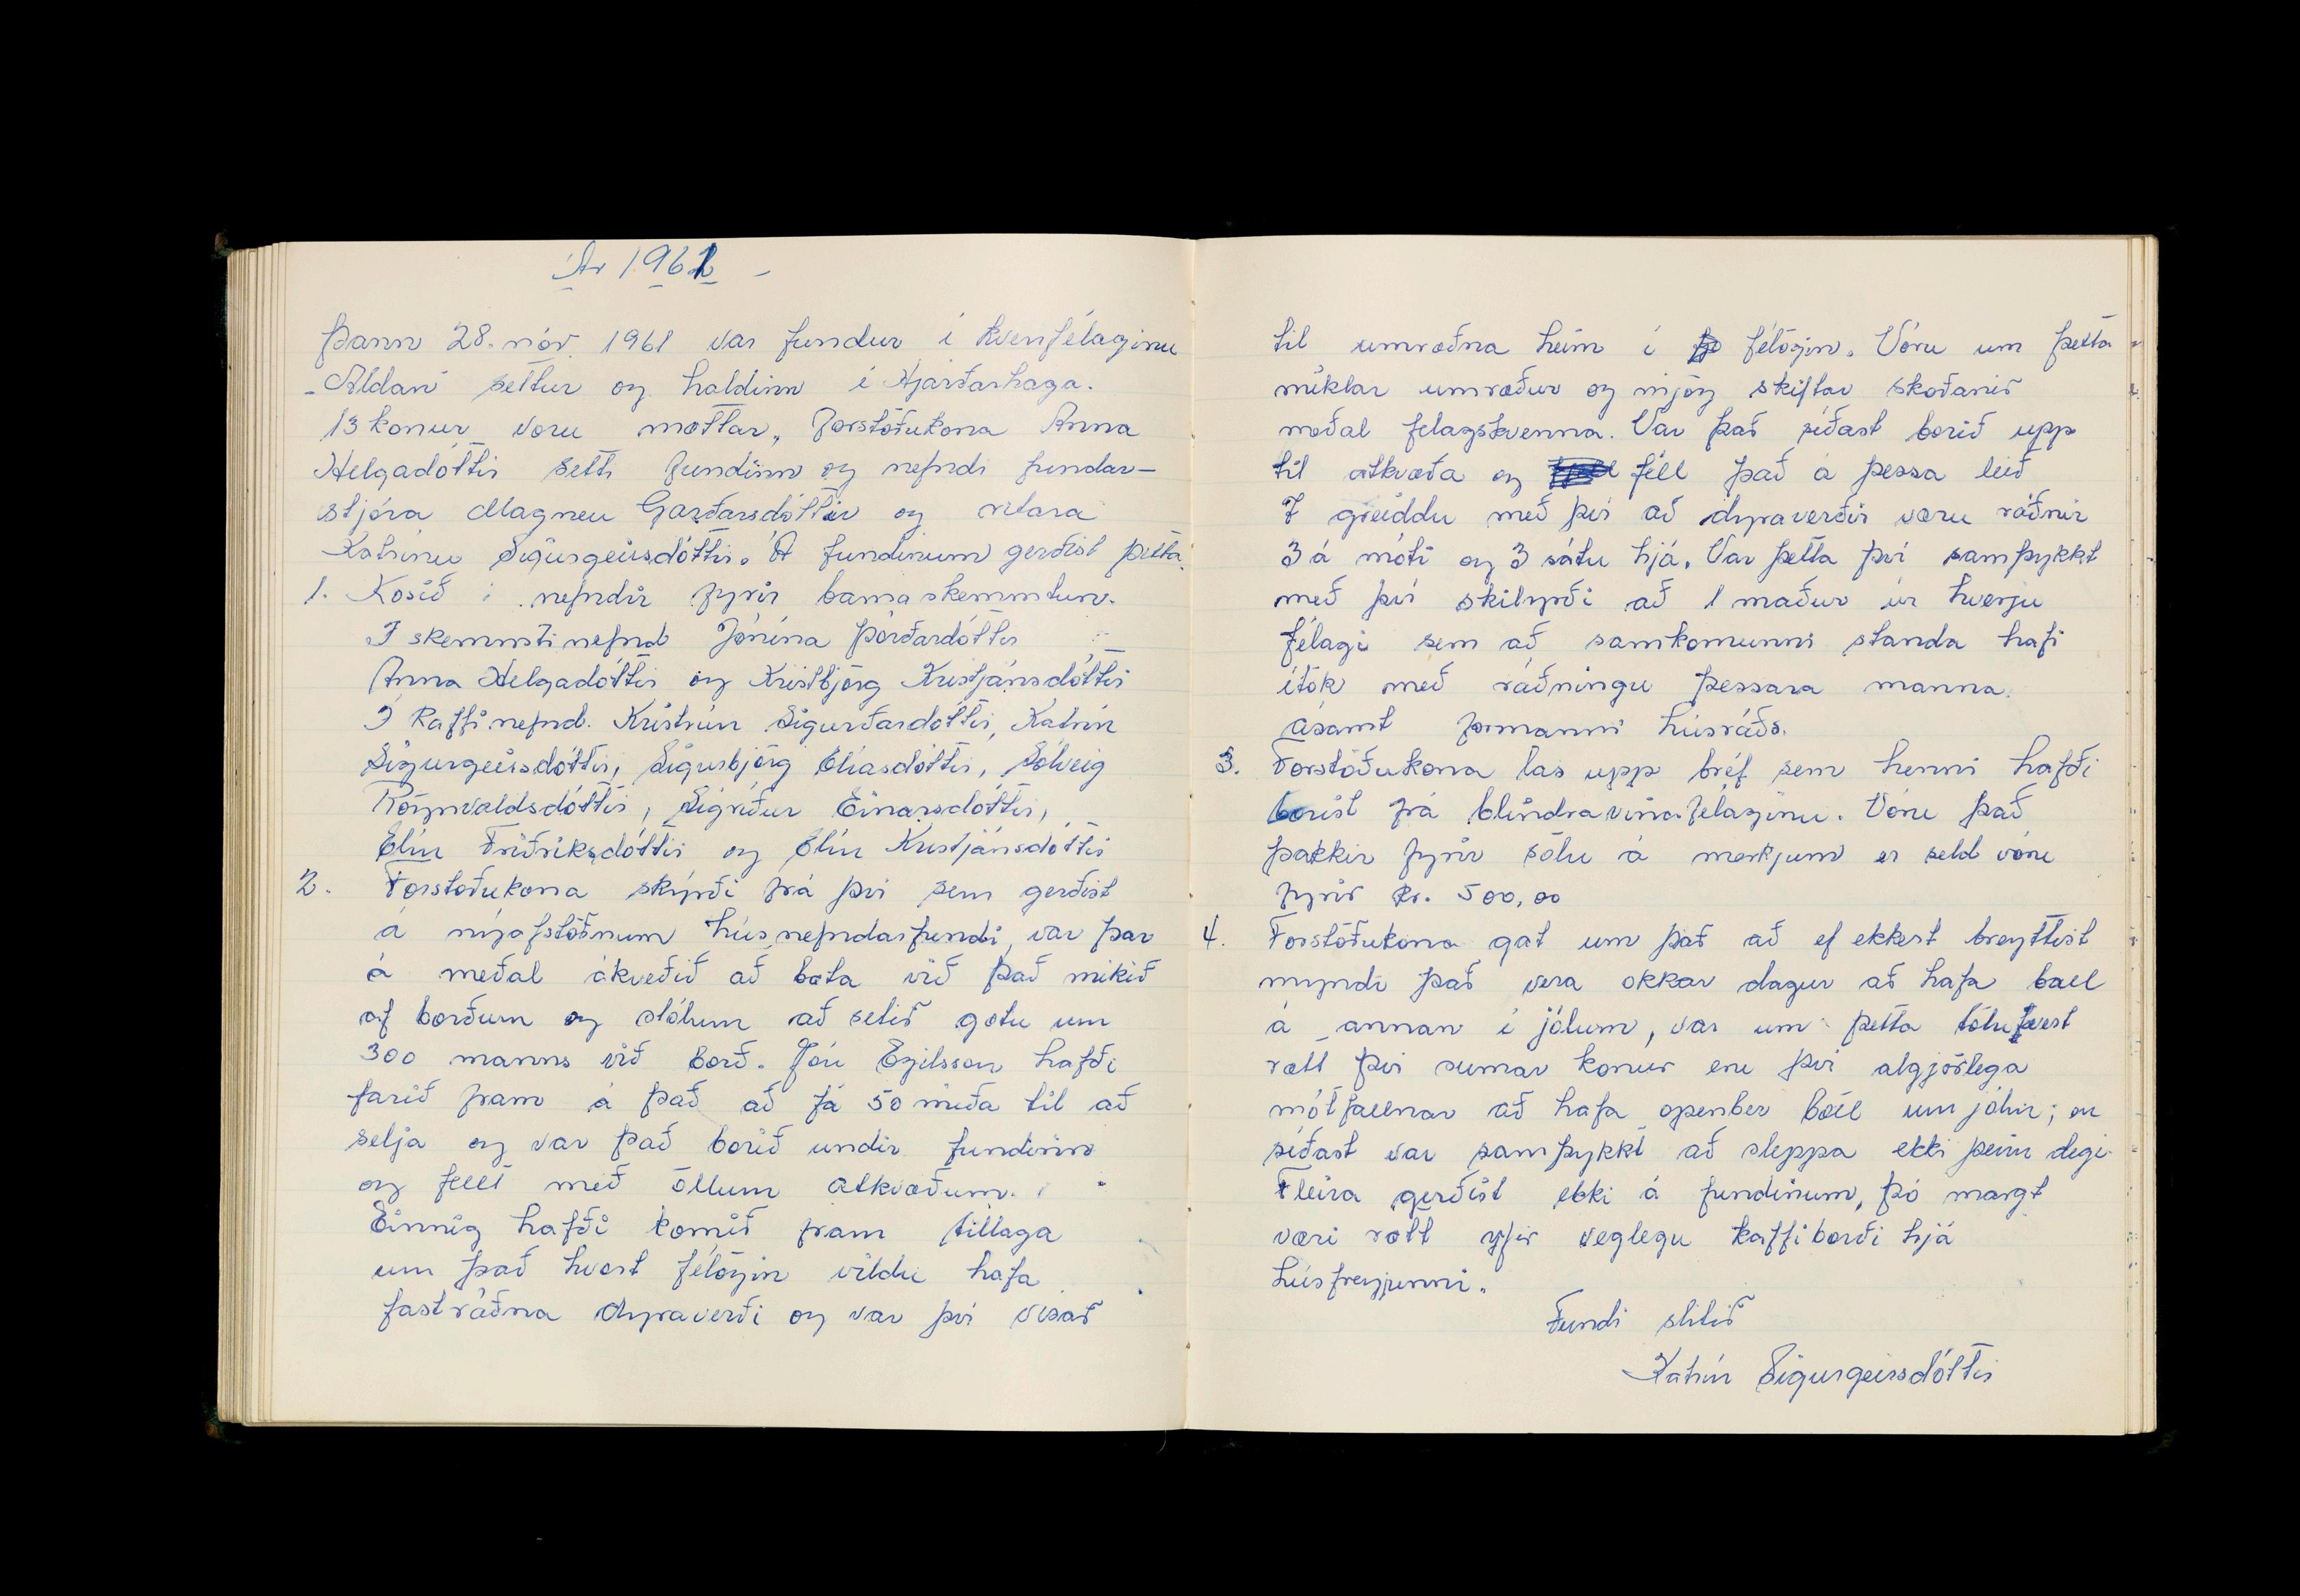 Ár 1961 -
Þann 28. nóv. 1961 var fundur í kvenfélaginu
"Aldan" settur og haldinn í Hjarðarhaga.
13 konur voru mættar, Forstöðukona Anna
Helgadóttir setti fundinn og nefndi fundar-
stjóra Magneu Garðarsdóttir og ritara
Katrínu Sigurgeirsdóttir. Á fundinum gerðist þetta.
1. Kosið í nefndir fyrir barnaskemmtun.
Í skemmtinefnd Jónína Þórðardóttir
Anna Helgadóttir og Kristbjörg Kristjánsdóttir
Í kaffinefnd. Kristrún Sigurðardóttir, Katrín
Sigurgeirsdóttir, Sigurbjörg Elíasdóttir, Sólveig
Rögnvaldsdóttir, Sigríður Einarsdóttir,
Elín Friðriksdóttir og Elín Kristjánsdóttir
2. Forstöðukona skýrði frá því sem gerðist
á nýafstöðnum húsnefndarfundi, var þar
á meðal ákveðið að bæta við það mikið
af borðum og stólum að setið gætu um
300 manns við borð. Jón Egilsson hafði
farið fram á það að fá 50 miða til að
selja og var það borið undir fundinn
og fellt með öllum atkvæðum.
Einnig hafði komið fram tillaga
um það hvort félögin vildu hafa
fastráðna dyraverði og var því vísað
til umræðna heim í félögin. Vóru um þetta
miklar umræður og mjög skiftar skoðanir
meðal felagskvenna. Var það síðast borið upp
til atkvæða og féll það á þessa leið
7 greiddu með því að dyraverðir væru ráðnir
3 á móti og 3 sátu hjá. Var þetta því samþykkt
með því skilyrði að 1 maður úr hverju
félagi sem að samkomunni standa hafi
ítök með ráðningu þessara manna.
ásamt formanni húsráðs.
3. Forstöðukona las upp bréf sem henni hafði
borist frá blindravinafélaginu. Vóru það
þakkir fyrir sölu á merkjum er seld vóru
fyrir kr. 500,00
4. Forstöðukona gat um það að ef ekkert breyttist
myndi það vera okkar dagur að hafa ball
á annan í jólum, var um þetta tölufvert
rætt því sumar konur eru því algjörlega
mótfallnar að hafa openber böll um jólin; en
síðast var samþykkt að sleppa ekki þeim degi
Fleira gerðist ekki á fundinum, þó margt
væri rætt yfir veglegu kaffiborði hjá
húsfreyjunni.
Fundi slitið
Katrín Sigurgeirsdóttir